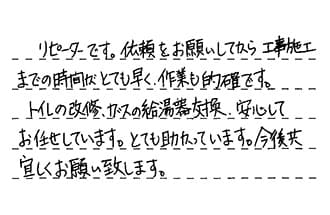 リピーターです。依頼をお願いしてから工事施工
までの時間がとても早く、作業も的確です。
トイレの改修、ガスの給湯器交換、安心して
お任せしています。とても助かっています。今後共
宜しくお願い致します。